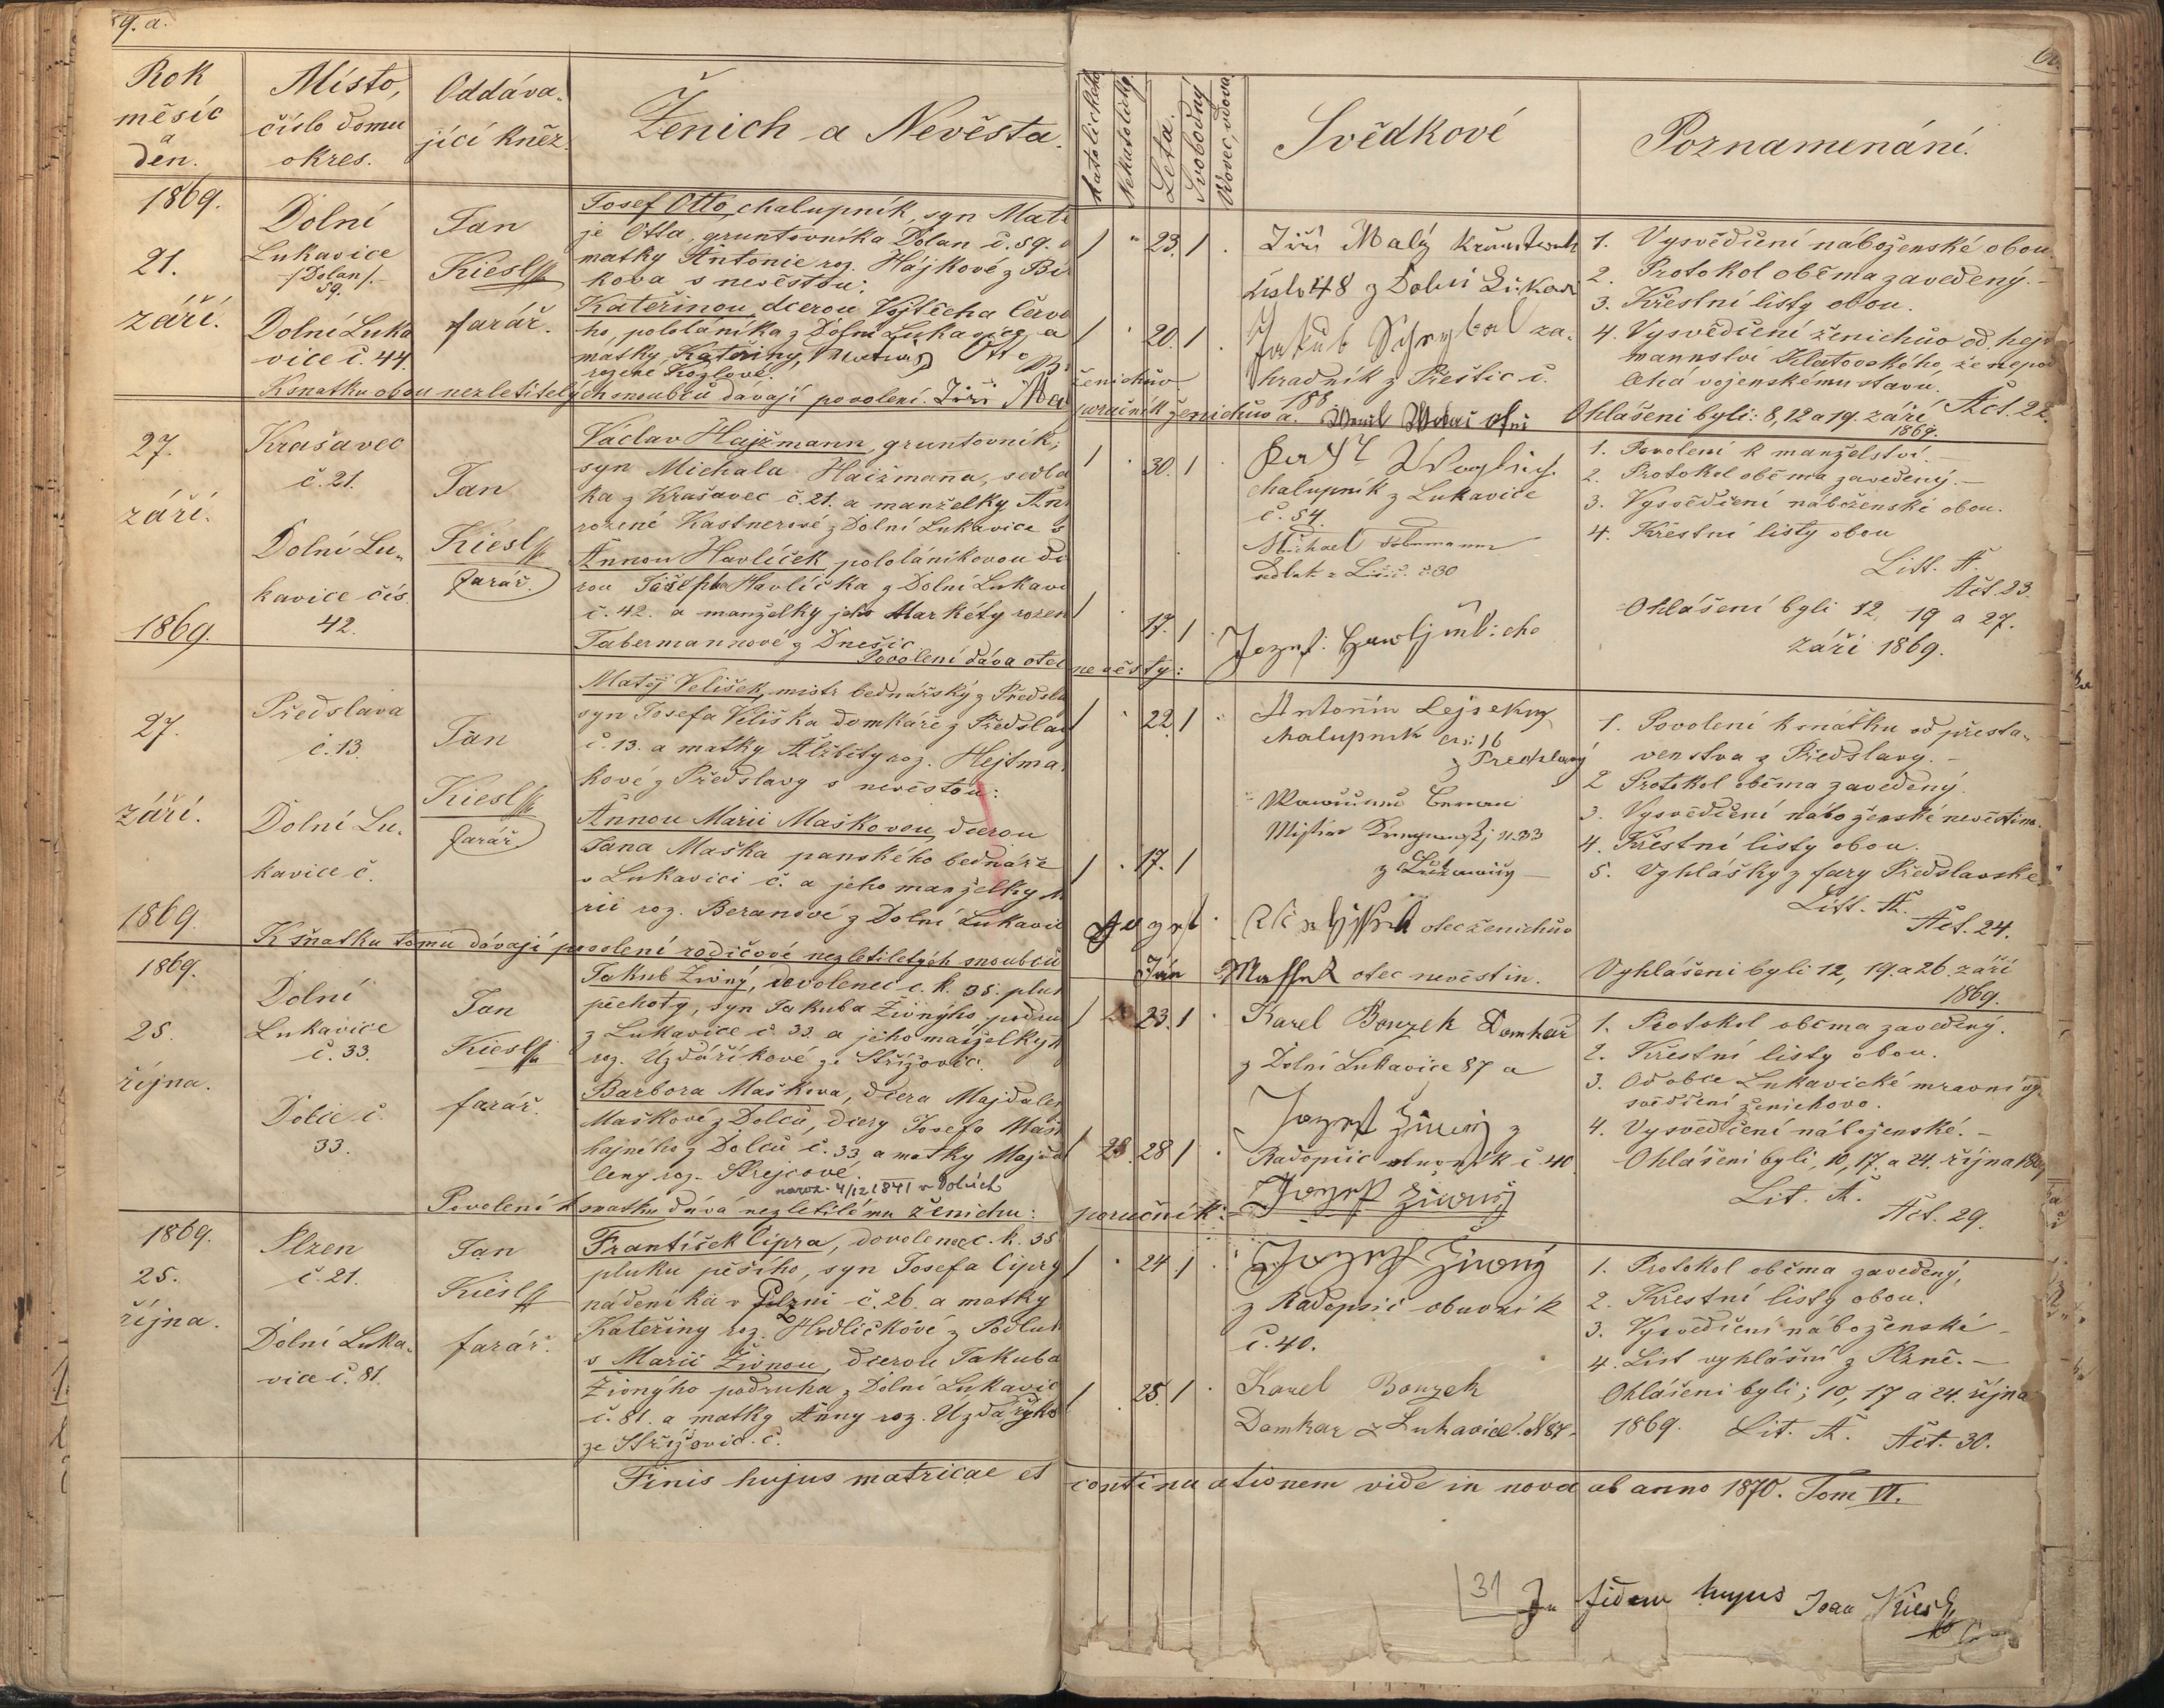 9. a.
Rok
měsíc
a
den.
Místo,
číslo domu
okres.
Oddáva-
jící kněz.
Ženich a Nevěsta.
1869.
21.
září.
Dolní
Lukavice
/Dolan/
59.
Dolní Luka
vice č. 44.
Jan
Kiesl
farář.
Josef Otto, chalupník, syn Matě
je Otta, gruntovníka Dolan č. 59. a
matky Antonie roz. Hájkové z
kova s nevěstou:
Kateřinou dcerou Vojtěcha
ho, pololáníka z Dolní Lukavice a
matky Kateřiny, Otto
rozené Kozlové.
K snatku obou nezletitelých snoubců dávají povolení. Jiří
27.
září.
Krašavec
č. 21.
Dolní Lu-
kavice čís.
42.
Jan
Kiesl
farář.
Václav Hajžmann, gruntovník,
syn Michala Hajžmanna, sedlá
ka z Krašavec č. 21. a manželky
rozené Kastnerové z Dolní Lukavice s
Annou Havlíček pololáníkovou
rou Josefa Havlíčka z Dolní Lukavi
č. 42. a manželky jeho Markéty rozen
Tabermannové z Dnešic
Povolení dáva otec
1869.
27.
září.
Předslava
č. 13.
Dolní Lu-
kavice č.
Jan
Kiesl
farář.
Matěj Velišek, mistr bednářský z Předsla
syn Josefa Veliška domkáře z Předsla
č. 13. a matky Alžběty roz. Hejtma
kové z Předslavy s nevěstou:
Annou Marii Maškovou, dcerou
Jana Maška panského bednáře
v Lukavici č. a jeho manželky
rii roz. Beranové z Dolní Lukavic
1869.
K sňatku tomu dávají povolení rodičové nezletiletých snoubců
1869.
25.
října.
Dolní
Lukavice
č. 33.
Dolce č.
33.
Jan
Kiesl
farář.
Jakub Živný, dovolenec c. k. 35. pluk
pěchoty, syn Jakuba Živnýho podru
z Lukavice č. 33. a jeho manželky
roz. Uzdáříkové ze Střížovic.
Barbora Maškova, dcera Majdalen
Maškové z Dolců, dcery Josefa Mašk
hajného z Dolců č. 33 a matky Majda
leny roz. Krejcové.
naroz. 4/12 1841 v Dolcích
Povolení k snatku dává nezletilému ženichu:
1869.
25.
října.
Plzen
č. 21.
Dolní Luka-
vice č. 81.
Jan
Kiesl
farář.
František Cipra, dovolenec c. k. 35
pluku pěšího, syn Josefa Cipry
nádeníka v Plzni č. 26. a matky
Kateřiny roz. Hrdličkové z
s Marií Živnou, dcerou Jakuba
Živnýho podruha z Dolní Lukavic
č. 81. a matky Anny roz.
ze Střížovic. č.
Finis hujus matricae et
Katolického
Nekatolický
Leta.
Svobodný
Vdovec, vdova.
Svědkové
Poznamenání.
1 " 23. 1
Jiří Malý
číslo 48 z Dolní
1 20. 1
Jakub za-
hradník z Přeštic č.
188.
ženichův.
poručník ženichův a.
1. Vysvědčení náboženské obou.
2. Protokol oběma zavedený.
3. Křestní listy obou.
4. Vysvědčení ženichůo od hejt
mannstva Klatovského, že nepod
léhá vojenskému stavu.
Act. 22.
Ohlášeni byli: 8, 12 a 19. září
1869.
1 30. 1
chalupník z Lukavice
č. 54.
Michael
17. 1
nevěsty:
1. Povolení k manželství.
2. Protokol oběma zavedený.
3. Vysvědčení náboženské obou.
4. Křestní listy obou
Litt. A.
Act. 23.
Ohlášení byli 12, 19 a 27.
září 1869.
1 22. 1
Antonin
chalupnik čis: 16
z
1 17. 1
otec ženichův
Ján otec nevěstin.
1. Povolení k snátku od předsta-
venstva z Předslavy.
2 Protokol oběma zavedený.
3. Vysvědčení náboženské nevěstino.
4. Křestní listy obou.
5. Vyhlášky z fary Předslavské
Litt. A.
Act. 24.
Vyhlášeni byli 12, 19. a 26. září
1869.
1 23. 1
Karel Bouzek Domkář
z Dolní Lukavice 87 a
1 28 1
Jozef Živný z
Radopšic obuvník č. 40
poručník: Jozef Živný
1. Protokol oběma zavedený.
2. Křestní listy obou.
3. Od obce Lukavické mravní vy-
svědčení ženichovo.
4. Vysvědčení náboženské.
Ohlášeni byli, 10, 17. a 24. října 1869
Lit. A.
Act. 29.
1 24 1
Jozef Živný
z Radopšic obuvník
č. 40.
1 25. 1
Karel Bouzek
Domkar z Lukavice N 87.
1. Protokol oběma zavedený,
2. Křestní listy obou.
3. Vysvědčení náboženské
4. List vyhlášní z Plzně.
Ohlášeni byli; 10, 17 a 24. října
1869. Lit. A. Act. 30.
continuationem vide in nova ab anno 1870. Tom VI.
31
In fidem hujus Joan Kiesl